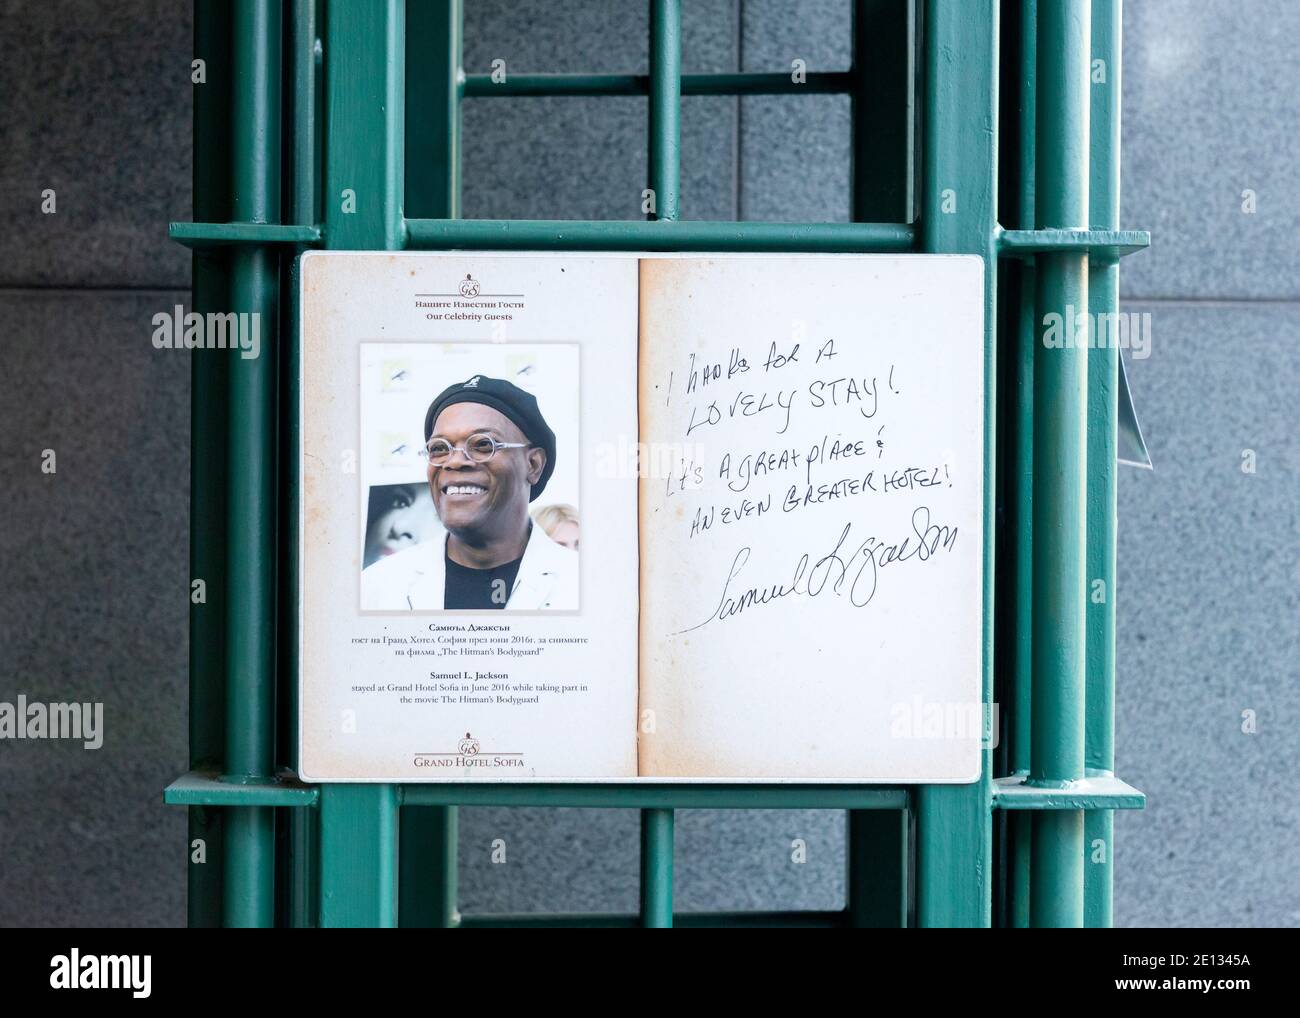 GS
Нашите Известни Гости
Our Celebrity Guests
Самюъл Джаксън
гост на Гранд Хотел София през юни 2016г. за снимките
на филма „The Hitman's Bodyguard"
Samuel L. Jackson
stayed at Grand Hotel Sofia in June 2016 while taking part in
the movie The Hitman's Bodyguard
GS
GRAND HOTEL SOFIA
THANKS FOR A
LOVELY STAY!
It's A GREAT plACE &
AN EVEN GREATER HOTEL!
Samuel L. Jackson
alamy
Image ID: 2E1345A
www.alamy.com